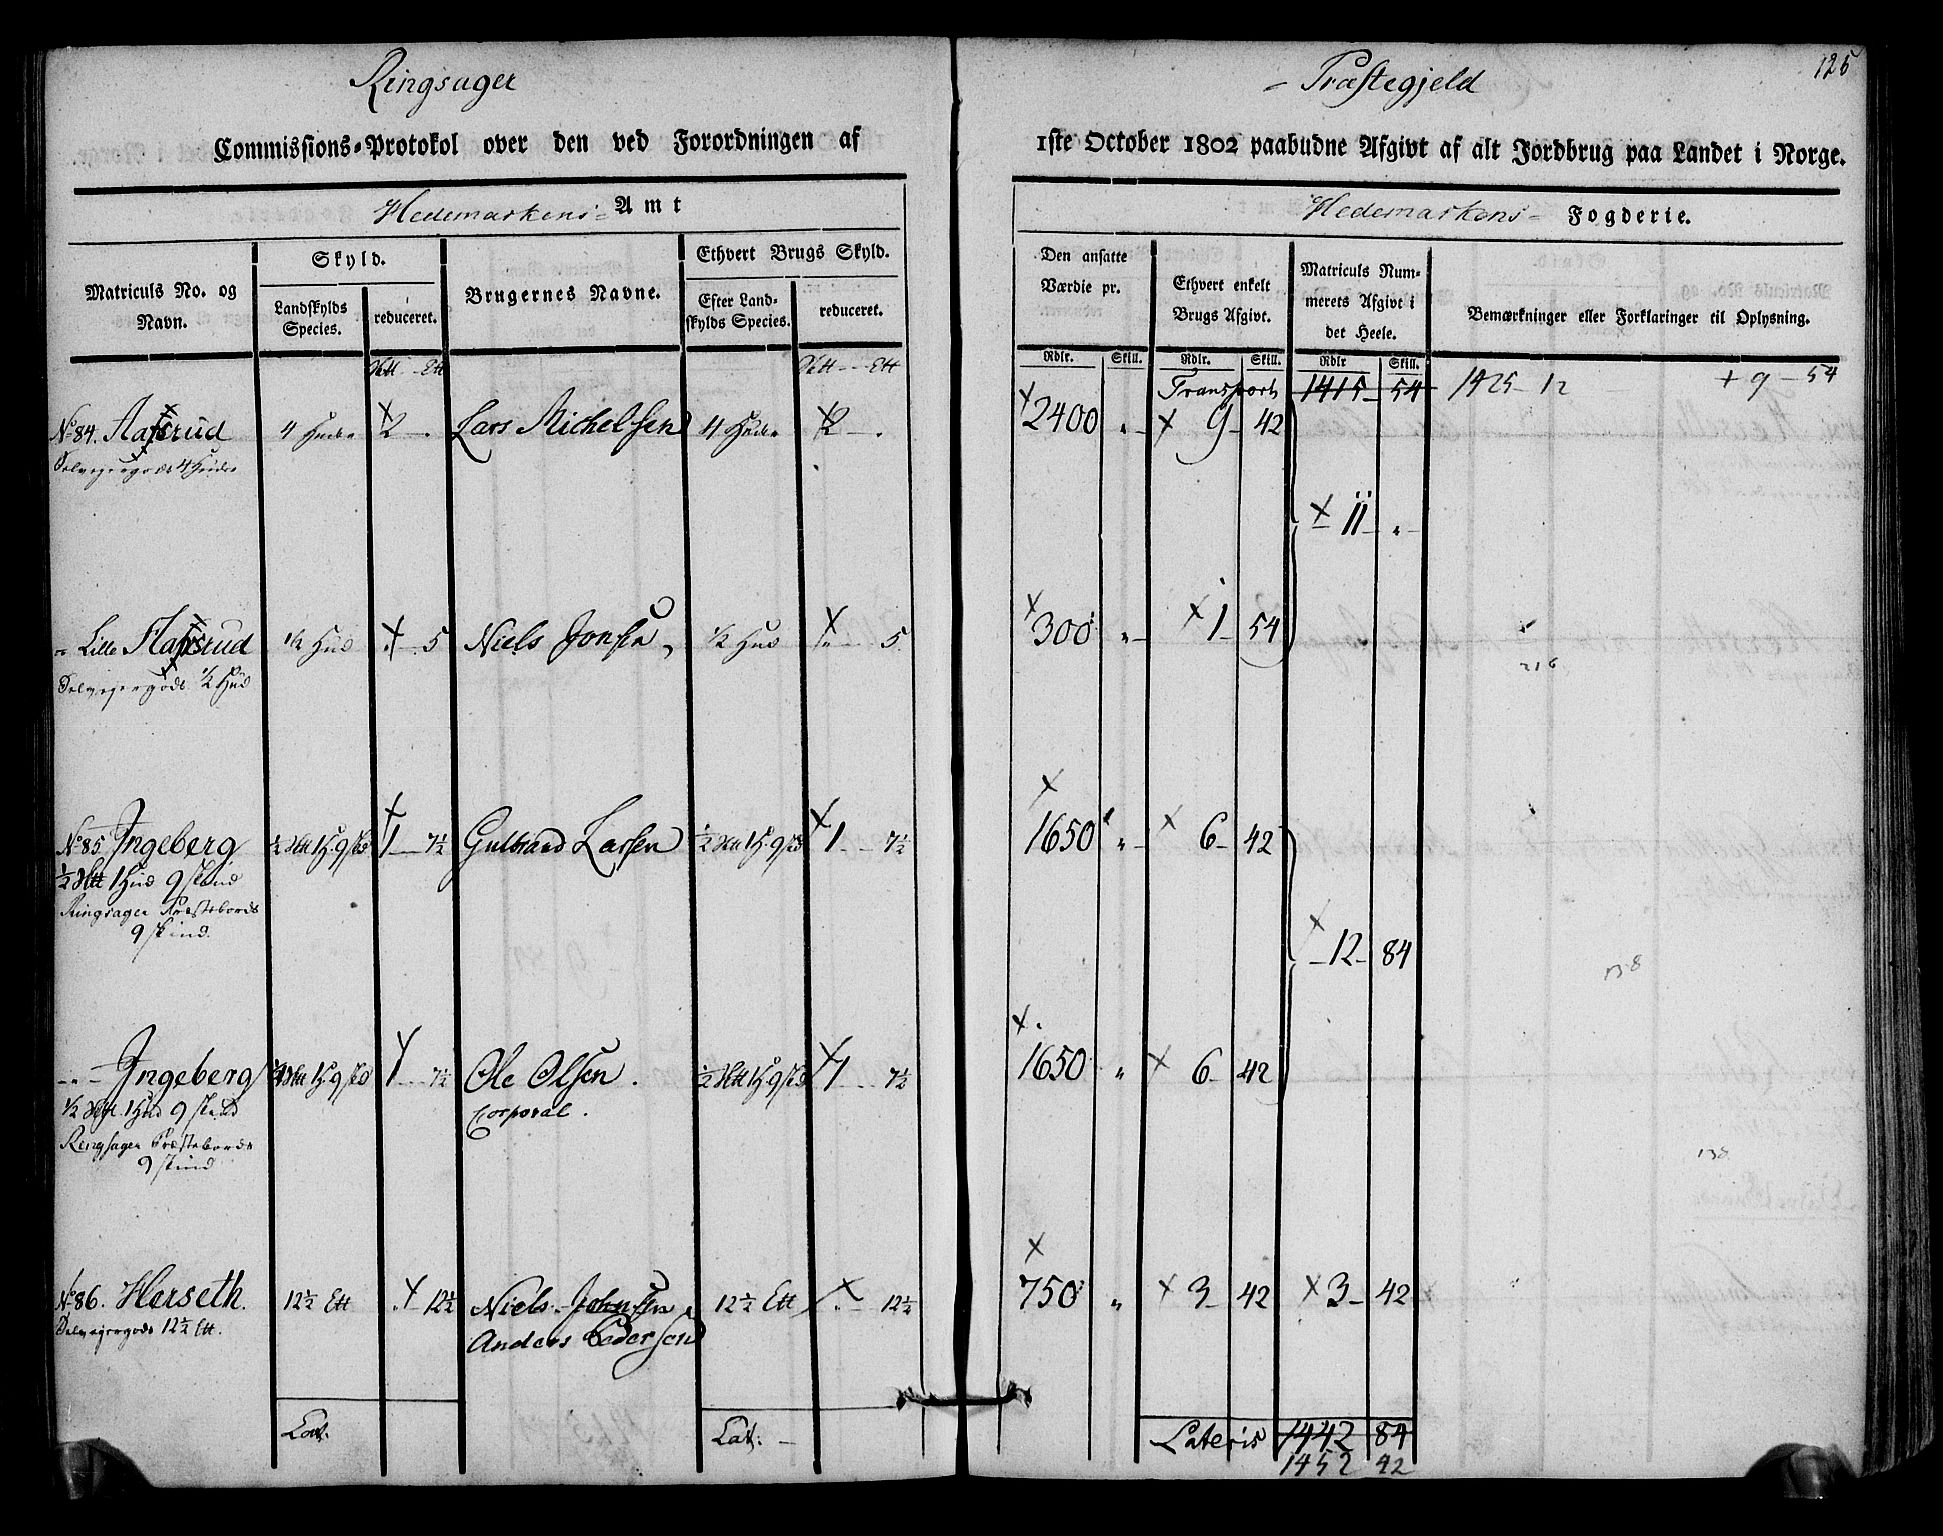 Ringsager - Præstegjeld 125
Commissions-Protokol over den ved Forordningen af 1ste October 1802 paabudne Afgivt af alt Jordbrug paa Landet i Norge.
Hedemarkens Amt
Hedemarkens Fogderie.
Matriculs No. og Navn.
Skyld.
Landskylds Species.
reduceret.
Brugernes Navne.
Ethvert Brugs Skyld.
Efter Landskylds Species.
reduceret.
Den ansatte Værdie pr.
Ethvert enkelt Brugs Afgivt.
Matriculs Nummerets Afgivt i det Heele.
Bemærkninger eller Forklaringer til Oplysning.
Rdlr. Skill. Rdlr. Skill. Rdlr Skill.
Transport 1415 54 1425 12 + 9 - 54
No 84. 4 Hude 2 - . Lars Michelsen 4 Hude 2 - . 2400 " 9 - 42
Selvejergods 4 Hude
11 - "
Lille 1/2 Hud " 5 Niels Jonsen 1/2 Hud " 5 300 " 1 - 54
Selvejergods 1/2 Hud
216
No 85 Ingeberg 1/2 1 H 9 skd 1 - 7 1/2 Gulbrand Larsen 1/2 1 H 9 skd 1 - 7 1/2 1650 " 6 - 42
1/2 1 Hud 9 skind
Ringsager Præstebords
9 skind.
12 - 84
138
- " - Ingeberg 1/2 1 H 9 skd 1 - 7 1/2 Ole Olsen. 1/2 1 H 9 skd 1 - 7 1/2 1650 " 6 - 42
1/2 1 Hud 9 skind Corporal.
Ringsager Præstebords
9 skind
138
No 86. Herseth. 12 1/2 " 12 1/2 Niels Johnsen 12 1/2 " 12 1/2 750 " 3 - 42 3 - 42
Selvejergods 12 1/2 Anders Pedersen
Lat. Lat. Lateris 1442 84
1452 42